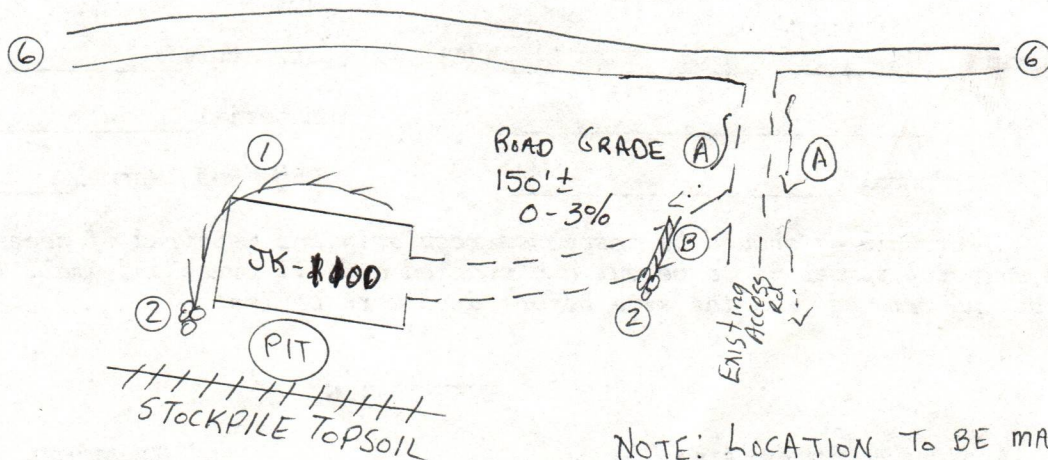 6
6
1
ROAD GRADE
150'±
0-3%
A
A
B
JK-
2
2
PIT
Existing
Access
Rd
STOCKPILE TOPSOIL
NOTE: LOCATION TO BE MA